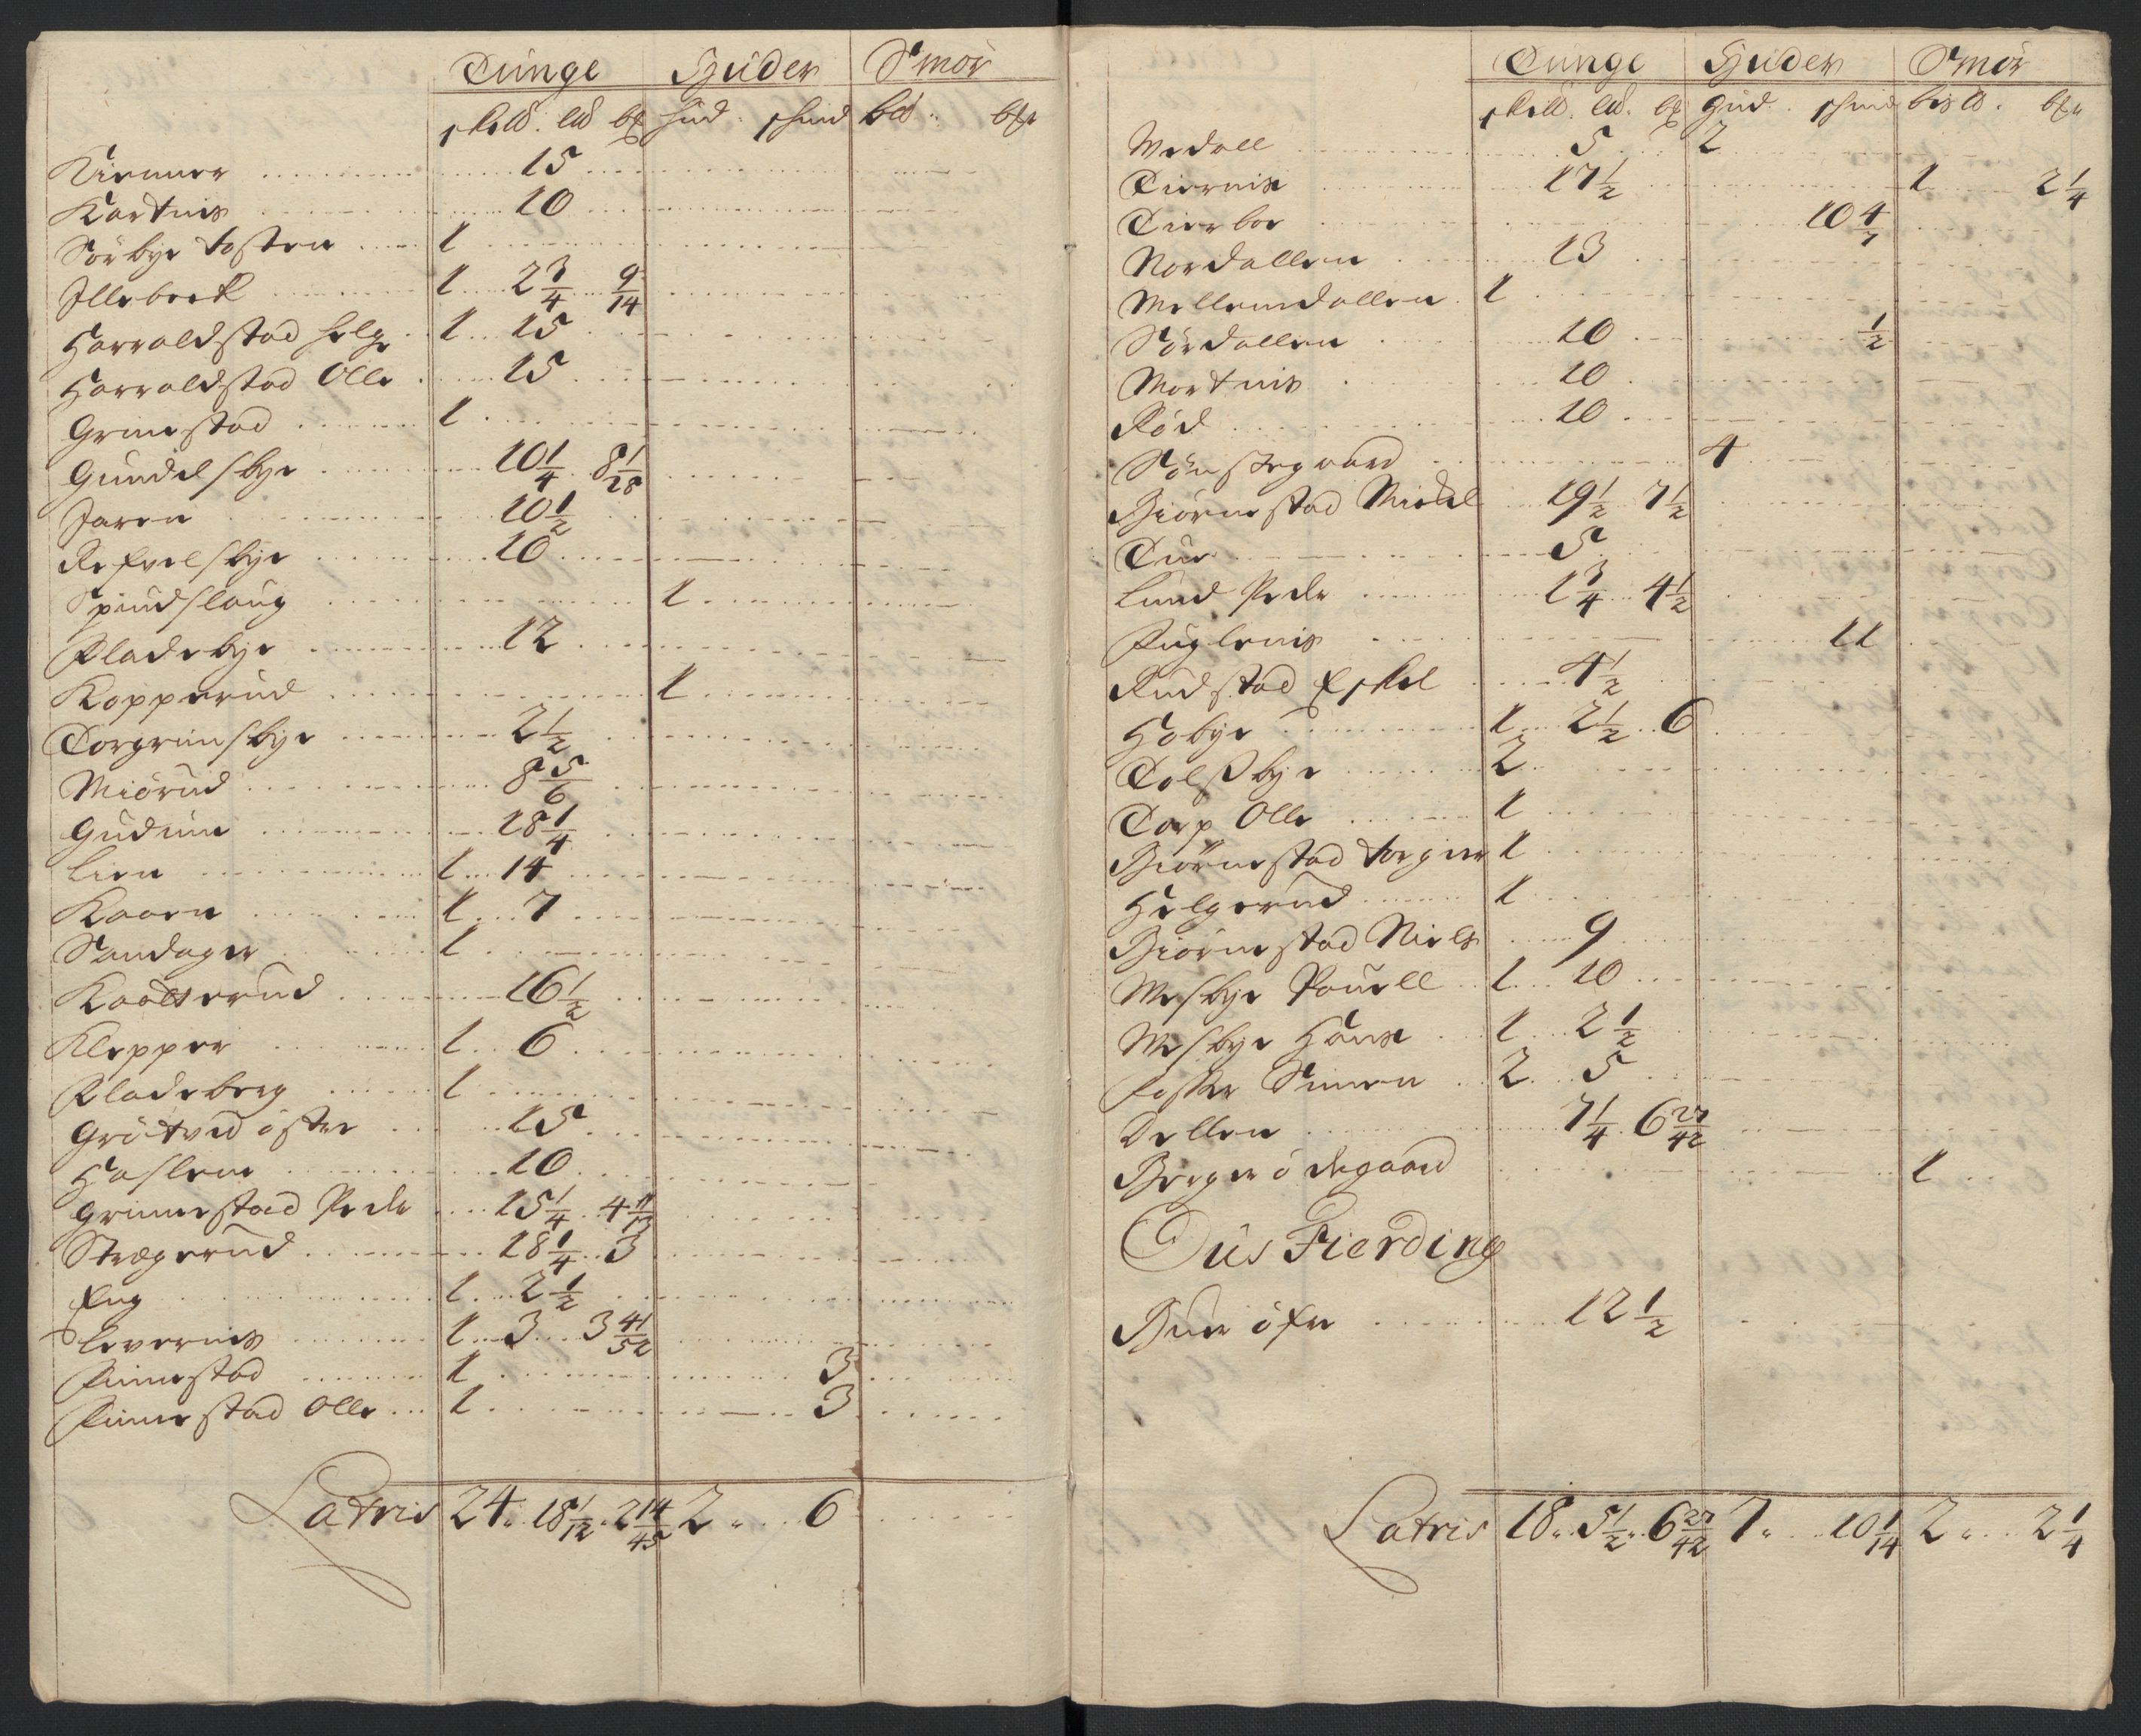 Tünge Hüder Smör
skπd. lπd bξ hüd. skind bπd.. bξr
Kiemmer 15
Kartnis 10
Sörbye Tosten 1
Illebeck 1 2 3/4 9/14
Harraldstad Helge 1 15
Harraldstad Olle 15
Grimstad 1
Gundelsbye 10 1/4 8 1/28
Jaren 10 1/2
Refvelsbye 10
Spindslaug 1
Fladebye 12
Kopperud 1
Torgrimsbye 2 1/2
Miörud 8 5/6
Gudum 18 1/4
Lien 1 14
Kaaen 1 7
Sandager 1
Kaatterud 16 1/2
Klepper 1 6
Fladeberg 1
Grötved östre 15
Haslem 10
Grimmestad Peder 15 1/4 4 11/13
Strægerud 18 1/4 3
Eng 1 2 1/2
Levernis 1 3 3 41/52
Finnestad 1 3
Finnestad Olle 1 3
Latris 24 18 1/12 2 14/45 2 6
Tünge Hüder Smör
skπd. lπd. bξ Hud. skind bis π. bξr
Medall 5 2
Tiernis 17 1/2 1 2 1/4
Tierboe 10 4/7
Nordallen 13
Mellemdallen 1
Sördallen 10 1/2
Mortnis 10
Röd 10
Sönstegaard 4
Biörnestad Mickel 19 1/2 7 1/2
Tue 5
Lund Peder 1 3/4 4 1/2
Fuglenis 11
Rudstad Eskel 4 1/2
Hobye 1 2 1/2 6
Tolsbye 2
Torp Olle 1
Biörnestad Torgier 1
Helgerud 1
Biörnestad Niels 9
Wesbye Pouell 1 10
Wesbye Hans 1 2 1/2
Foster Simen 2 5
Dellen 7 1/4 6 27/42
Berger ödegaard 1
Ous Fierding
Buer öfre 12 1/2
Latris 18 5 1/2 6 27/42 7 10 1/14 2 2 1/4